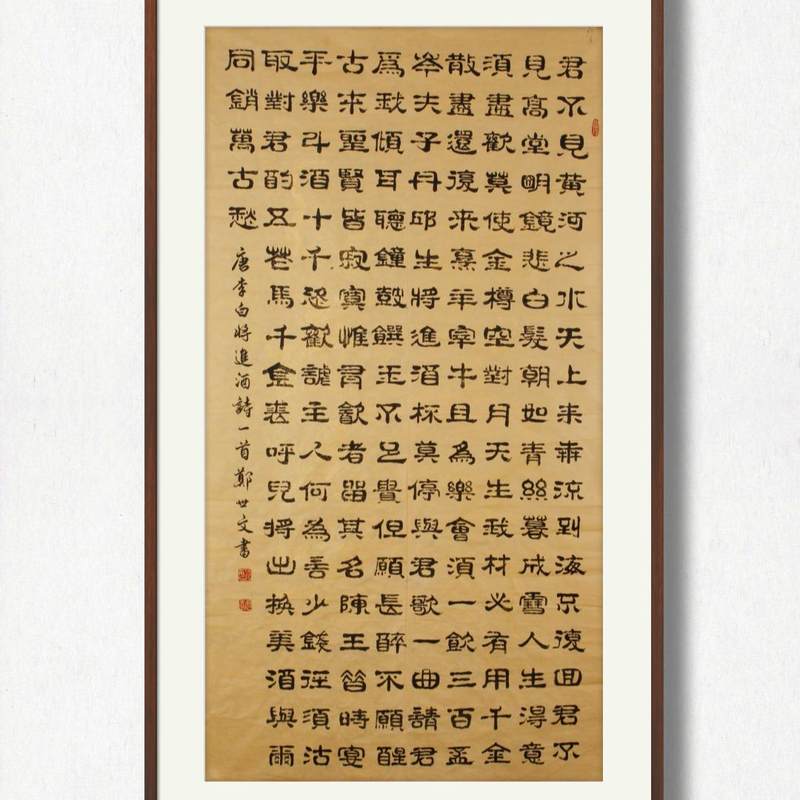 君不見黃河之水天上來奔流到海不復回君不
見高堂明鏡悲白髮朝如青絲暮成雪人生得意
須盡歡莫使金樽空對月天生我材必有用千金
散盡還復来烹羊宰牛且為樂會須一飲三百盃
岑夫子丹邱生將進酒杯莫停與君歌一曲請君
爲我傾耳聽鐘鼓饌玉不足貴但願長醉不願醒
古來聖賢皆寂寞惟有飲者留其名陳王昔時宴
平樂斗酒十千恣歡謔主人何為言少錢徑須沽
取對君酌五花馬千金裘呼兒將出換美酒與爾
同銷萬古愁
唐李白將進酒詩一首鄭世文書